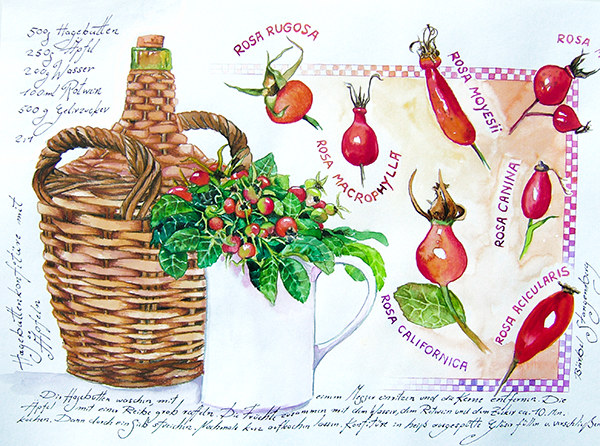 500g Hagebutten
250g Äpfel
200g Wasser
100ml Rotwein
500g Gelierzucker
2:1
Hagebuttenkonfitüre mit
Äpfeln
ROSA RUGOSA
ROSA MACROPHYLLA
ROSA MOYESII
ROSA
ROSA CANINA
ROSA CALIFORNICA
ROSA ACICULARIS
Die Hagebutten waschen, mit einem Messer einritzen und die Kerne entfernen. Die
Äpfel mit eine Reibe grob raffeln. Die Früchte zusammen mit dem Wasser, dem Rotwein und dem Zucker ca. 10. Min.
kochen. Dann durch ein Sieb streichen. Nochmals kurz aufkochen lassen. Konfitüre in heiß ausgespülte Gläser füllen u. verschließen